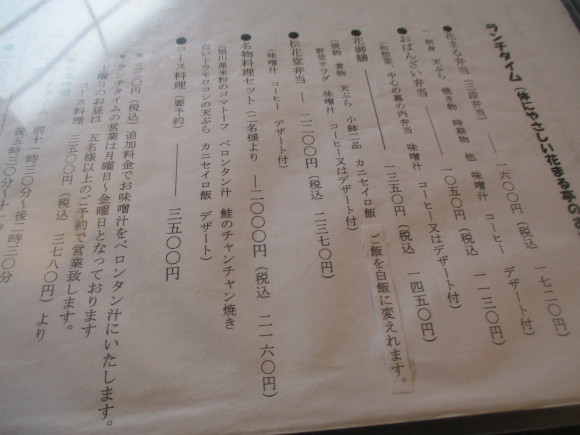 ランチタイム (体にやさしい花まる亭の
●花まる弁当 (三段弁当) ― 一六〇〇円 (税込 一七二〇円)
(刺身 天ぷら 焼き物 時期物 他 味噌汁 コーヒー デザート付)
●おばんざい弁当 ― 一〇五〇円 (税込 一一三〇円)
(和惣菜 中心の幕の内弁当 味噌汁 コーヒー又はデザート付)
●花御膳 ― 一三五〇円 (税込 一四五〇円)
(焼物 煮物 天ぷら 小鉢二品 カニセイロ飯 ご飯を白飯に変えれます。
野菜サラダ 味噌汁 コーヒー又はデザート付)
●松花堂弁当 ― 二二〇〇円 (税込 二三七〇円)
(味噌汁 コーヒー デザート付)
●名物料理セット (二名様より ― 二〇〇〇円 (税込 二一六〇円)
(相川産米粉のゴマトーフ ベロンタン汁 鮭のチャンチャン焼き
白いトウモロコシの天ぷら カニセイロ飯 デザート)
●コース料理 (要予約) ― 三五〇〇円
三〇円 (税込) 追加料金でお味噌汁をベロンタン汁にいたします。
＊ランチタイムの営業は月曜日～金曜日となっております
土曜日のお昼は 五名様以上のご予約で営業致します。
コース料理 三五〇〇円 (税込 三七八〇円) より
前十一時三〇分～後二時三〇分
後五時三〇分～